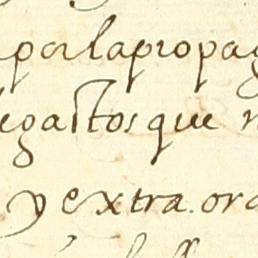 por la propag
egastos que
y extra.ord